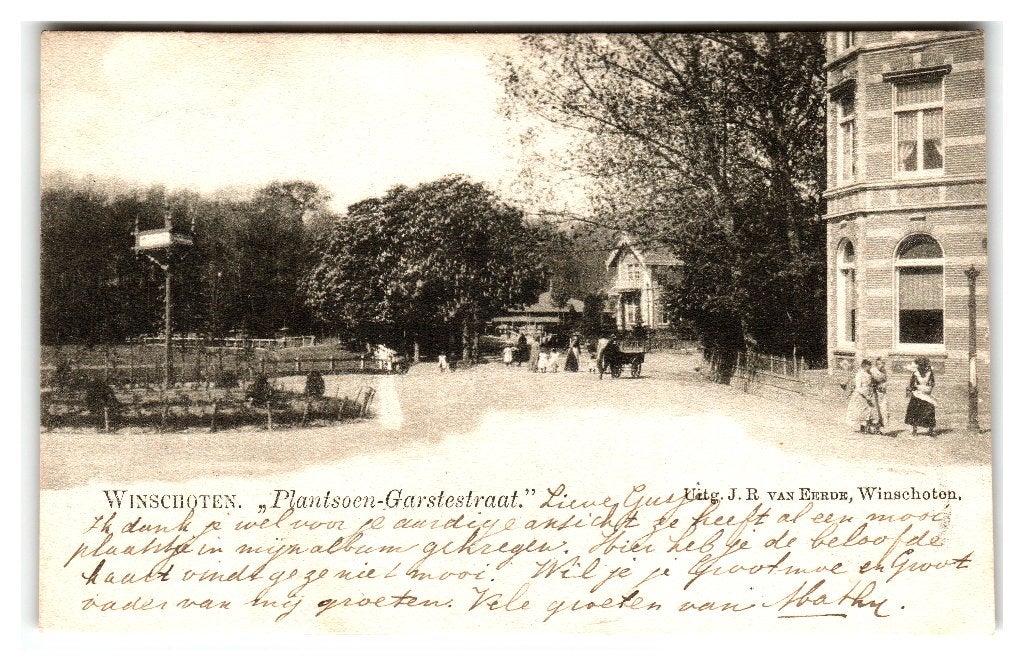 WINSCHOTEN. „Plantsoen-Garstestraat.” Lieve Uitg. J. R VAN EERDE, Winschoten.
Ik dank je wel voor je aardige ansicht ze heeft al een mooi
plaatsje in mijn album gekregen. Hier heb je de beloofde
kaart vindt ge ze niet mooi. Wil je je Grootmoe en Groot
vader van mij groeten. Vele groeten van